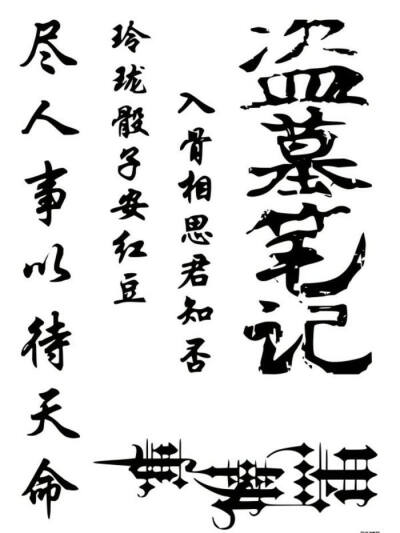 盗墓笔记
入骨相思君知否
玲珑骰子安红豆
尽人事以待天命